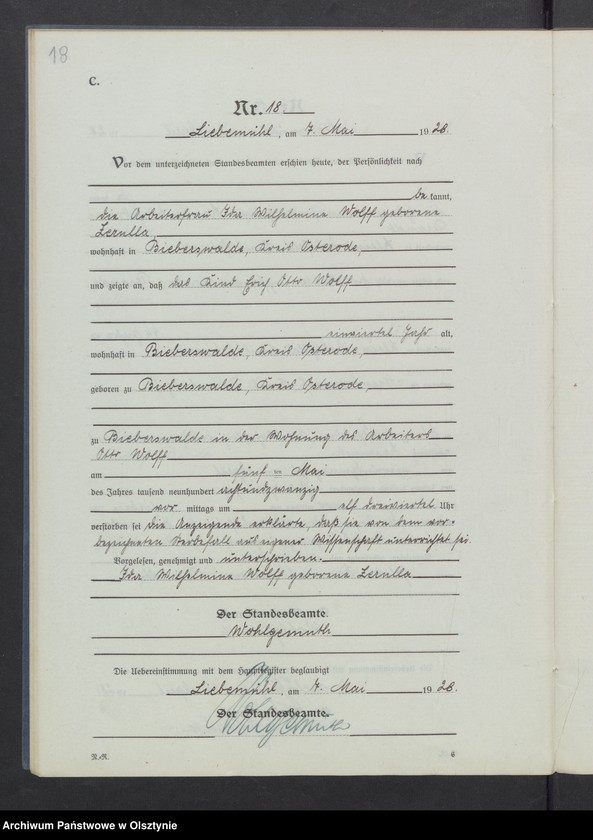 18
C.
Nr. 18
Liebemühl, am 7. Mai 1928.
Vor dem unterzeichneten Standesbeamten erschien heute, der Persönlichkeit nach
be kannt,
die Arbeiterfrau Ida Wilhelmine Wolff geborene
Zerulla
wohnhaft in Bieberswalde, Kreis Osterode,
und zeigte an, daß das Kind Erich Otto Wolff
einviertel Jahr alt,
wohnhaft in Bieberswalde, Kreis Osterode,
geboren zu Bieberswalde, Kreis Osterode,
zu Bieberswalde in der Wohnung des Arbeiters
Otto Wolff
am fünf ten Mai
des Jahres tausend neunhundert achtundzwanzig
vor mittags um elf dreiviertel Uhr
verstorben sei die Anzeigende erklärte, daß sie von dem vor-
bezeichneten Sterbefall aus eigener Wissenschaft unterrichtet sei.
Vorgelesen, genehmigt und unterschrieben.
Ida Wilhelmine Wolff geborene Zerulla
Der Standesbeamte.
Wohlgemuth
Die Uebereinstimmung mit dem Hauptregister beglaubigt
Liebemühl, am 7. Mai 1928.
Der Standesbeamte.
Wohlgemuth
N.R.
6
Archiwum Państwowe w Olsztynie